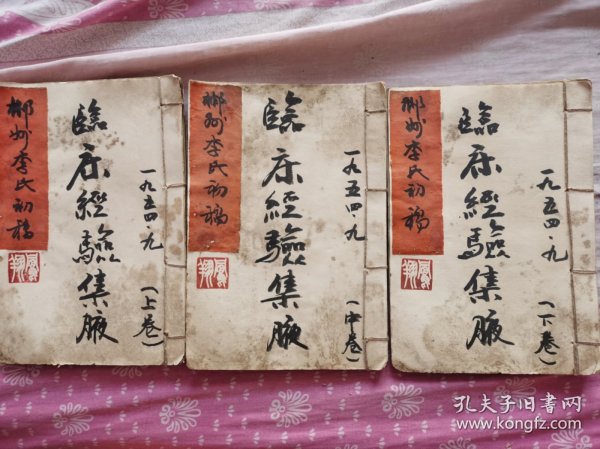 郴州李氏初稿
臨床經驗集腋
一九五四·九
(上卷)
郴州李氏初稿
臨床經驗集腋
一九五四·九
(中卷)
郴州李氏初稿
臨床經驗集腋
一九五四·九
(下卷)
孔夫子旧书网
www.kongfz.com